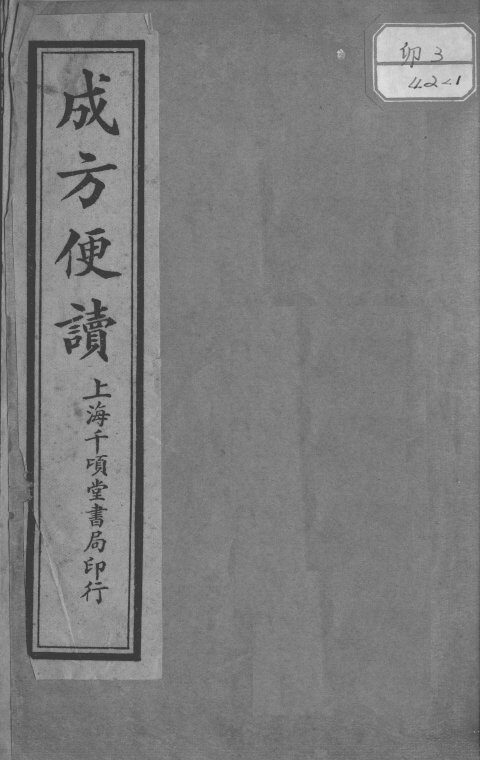 成方便讀
上海千頃堂書局印行
卯 3
42-1